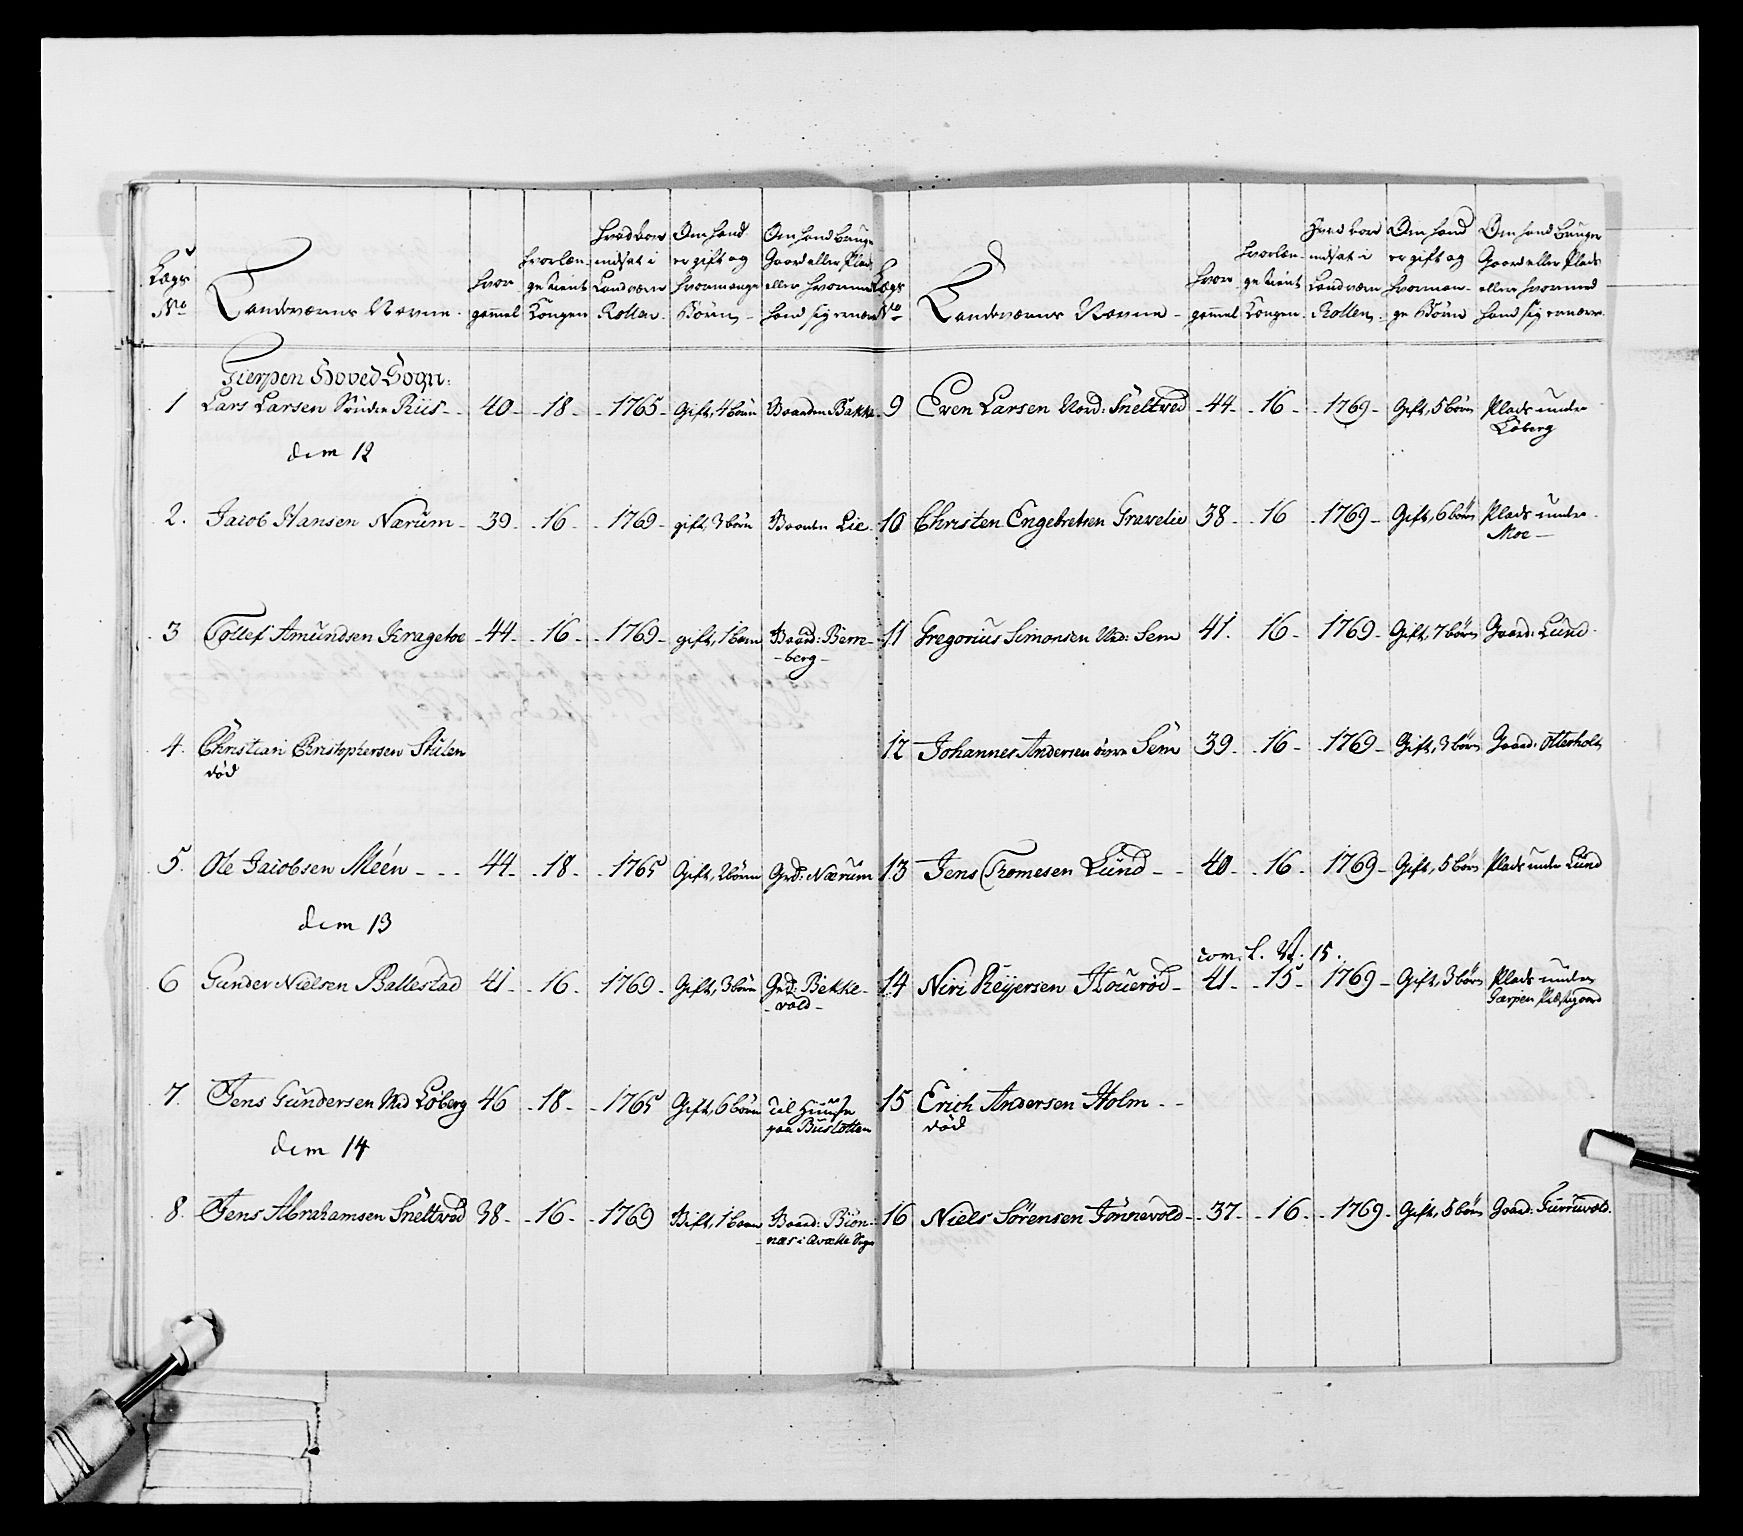 Lægs No
Landeværns Navne.
hvor gammel
hvorlænge tient Kongen
hvad Aar indsat i Landværn Rollen.
Om hand er gift og hvormange Börn
Om hand bruger Gaard eller Plads eller hvormed hand sig ernærer
Gierpen Hoved Sogn:
1 Lars Larsen Söndre Riis - 40 - 18 - 1765 - Gift, 4 börn Bakke
dem 12
2. Jacob Hansen Nærum - 39 - 16 - 1769 - gift, 3 börn Lie
3 Tollef Amundsen Kragetoe - 44 - 16 - 1769 - gift, 1 barn Gaard: Berre-
- berg -
4. Christian Christophersen Stulen
död
5. Ole Jacobsen Méen - - - 44 - 18 - 1765 Gift, 2 börn Grd: Nærum
dem 13
6 Gunder Nielsen Ballestad 41 - 16 - 1769 - Gift, 3 börn Grd: Bekke-
- vold -
7. Jens Gundersen Ned Löberg 46 - 18 - 1765 Gift, 6 börn til Huuse
paa
dem 14
8. Jens Abrahamsen Sneltved 38 - 16 - 1769 Gift, 1 barn Gaard: Biön-
næs i Sogn
Lægs No
Landeværns Navne -
hvor gammel
hvorlænge tient Kongen
hvad Aar indsat i Landværn Rollen.
Om hand er gift og hvormange Börn
Om hand bruger Gaard eller Plads eller hvormed hand sig ernærer.
9 Even Larsen Nord: Sneltved - 44 - 16 - 1769 - Gift, 5 börn Plads under
Löberg
10 Christen Engebretsen Gravelie 38 - 16 - 1769 - Gift, 6 börn Plads under
Moe -
11 Gregorius Simonsen Ned: Sem 41. 16 - 1769 - Gift, 7 börn Gaard: Lund.
12 Johannes Andersen övre Sem 39 - 16 - 1769 - Gift, 3 börn Gaard: Otterholt
13 Jens Thomesen Lund - - 40 - 16 - 1769 - Gift, 5 börn Plads under Lund
com. L. No. 15.
14 Neri Reyersen Houeröd - 41 - 15 - 1769 - Gift, 3 börn Plads under
Gærpen Præstgaard
15 Erich Andersen Holm - -
död
16 Niels Sörensen Jönnevold - 37 - 16 - 1769 - Gift, 5 börn Gaard: